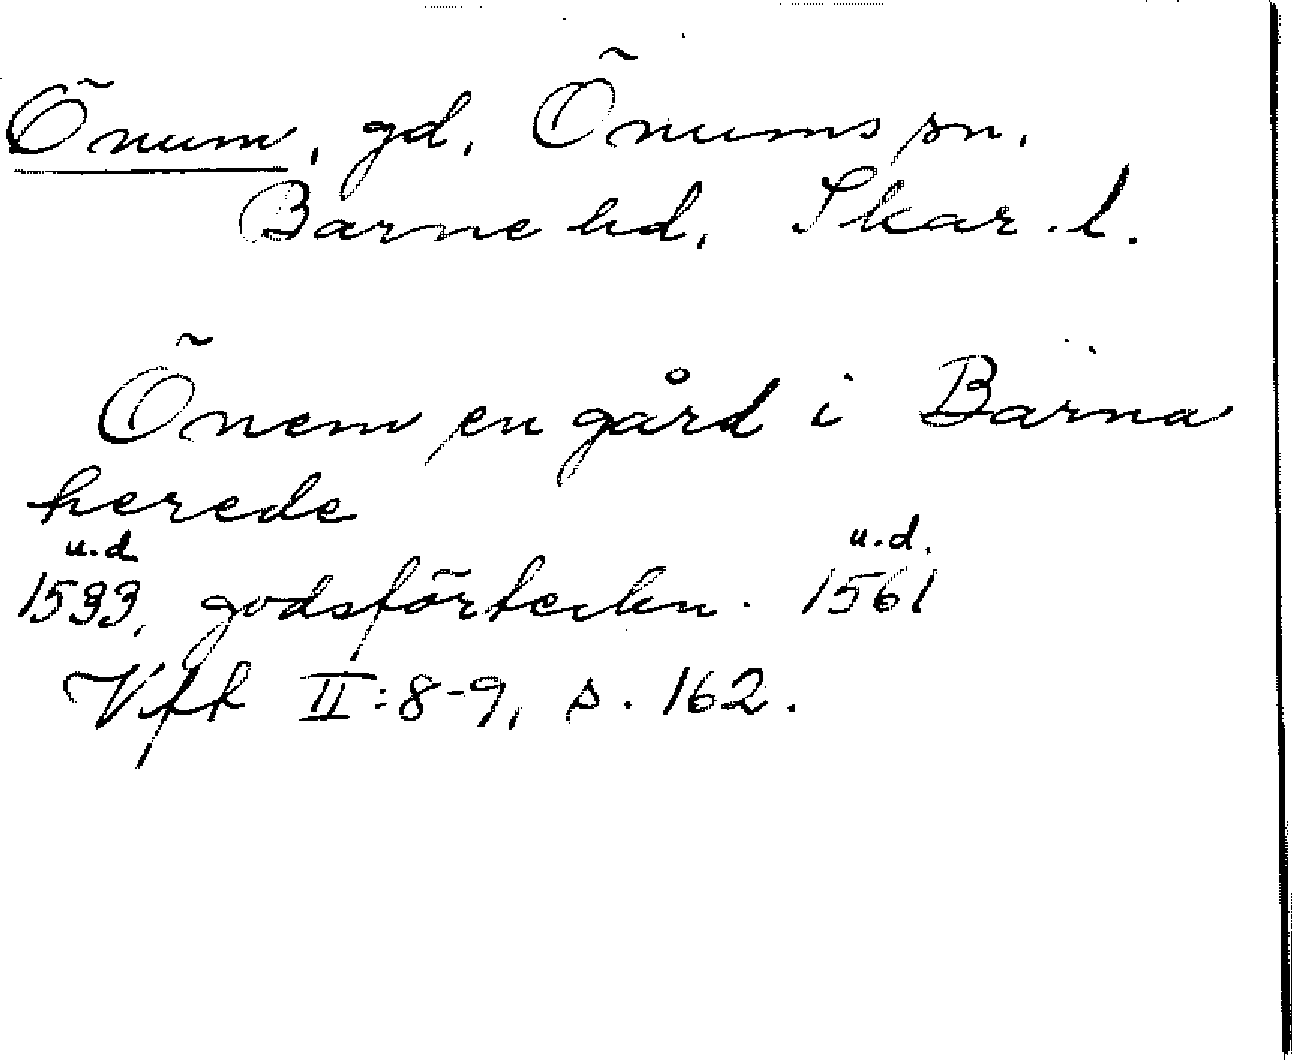 Önum, gd, Önums sn.
Barne hd, Skar. l.
Önem en gård i Bärna
herede
u.d u.d.
1533, godsförteckn. 1561
Vfk II:8-9, s. 162.